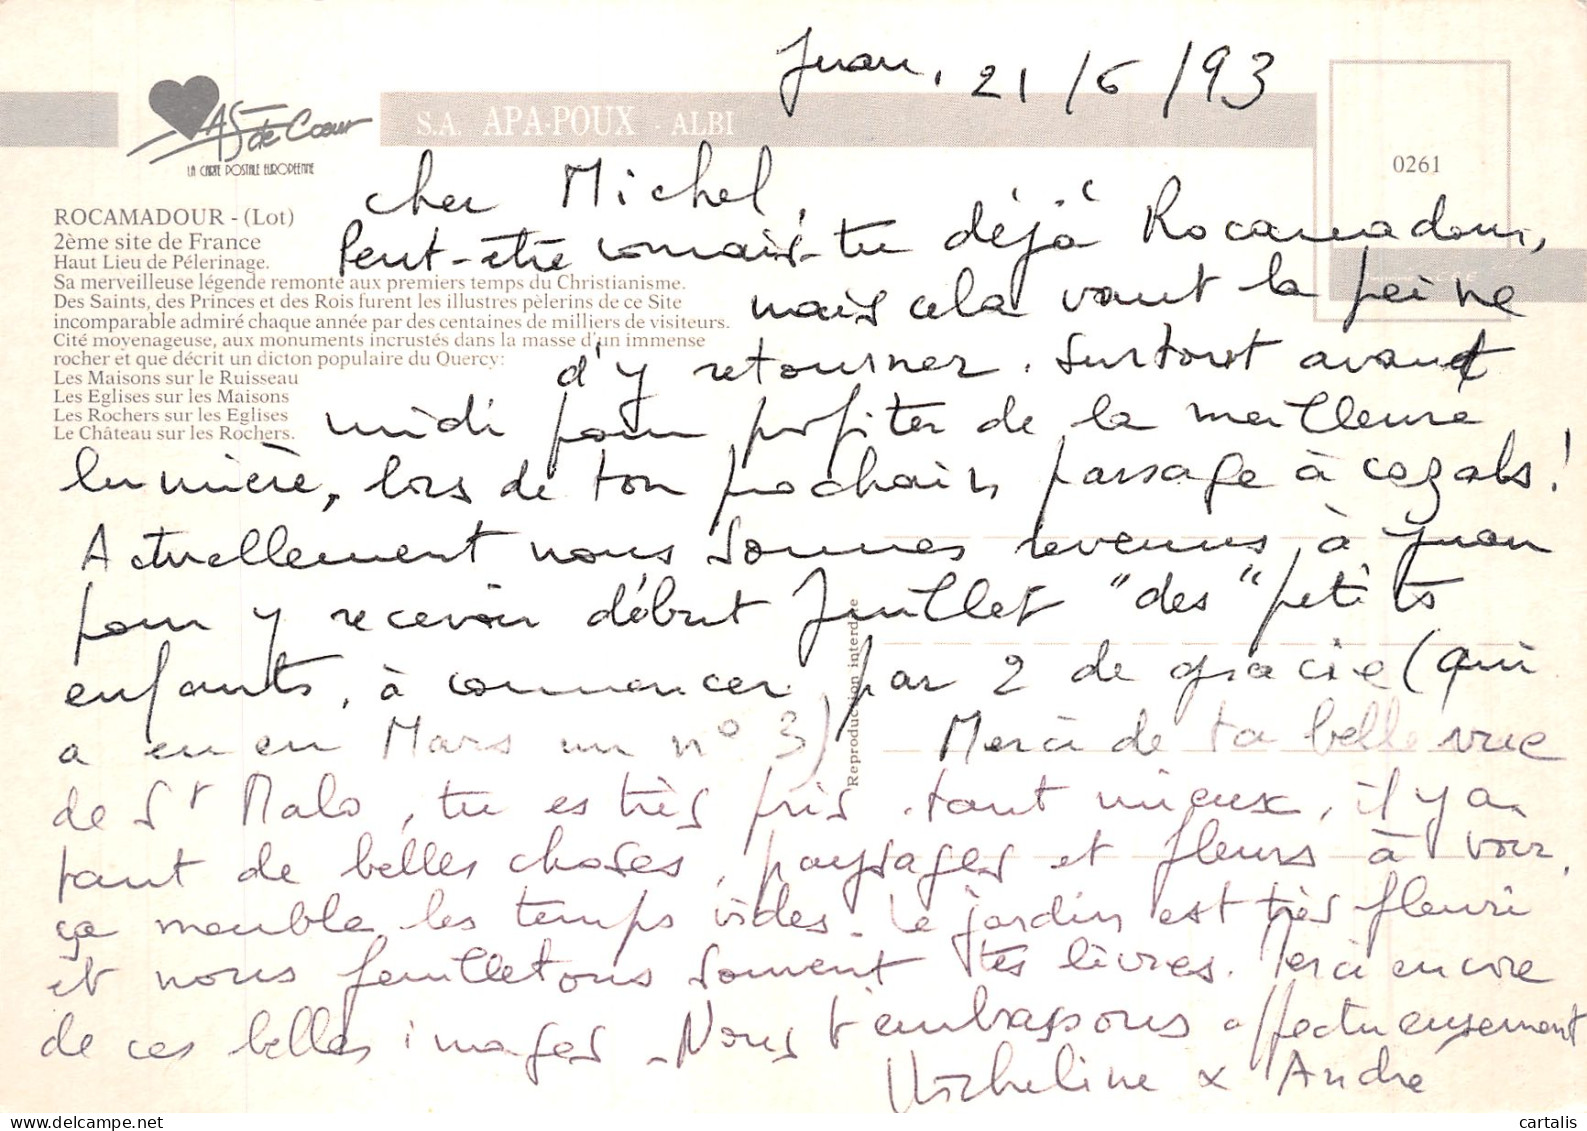 Juan, 21/6/93
AS de Cœur
LA CARTE POSTALE EUROPEENNE
S.A. APA-POUX - ALBI
0261
ROCAMADOUR - (Lot)
2ème site de France
Haut Lieu de Pélerinage.
Sa merveilleuse légende remonte aux premiers temps du Christianisme.
Des Saints, des Princes et des Rois furent les illustres pèlerins de ce Site
incomparable admiré chaque année par des centaines de milliers de visiteurs.
Cité moyenageuse, aux monuments incrustés dans la masse d'un immense
rocher et que décrit un dicton populaire du Quercy:
Les Maisons sur le Ruisseau
Les Eglises sur les Maisons
Les Rochers sur les Eglises
Le Château sur les Rochers.
Reproduction interdite
Cher Michel,
Peut-être connais-tu déjà Rocamadour,
mais cela vaut la peine
d'y retourner. Surtout avant
midi pour profiter de la meilleure
lumière, lors de ton prochain passage à Cazals!
Actuellement nous sommes revenus à Juan
pour y recevoir début Juillet "des" petits
enfants, à commencer par 2 de gracie (qui
a eu en Mars un n° 3) Merci de ta belle vue
de St Malo, tu es très pris. tant mieux, il y a
tant de belles choses, paysages et fleurs à voir,
ça meuble les temps vides. Le jardin est très fleuri
et nous feuilletons souvent tes livres. Merci encore
de ces belles images. Nous t'embrassons affectueusement
Micheline & André
cartalis